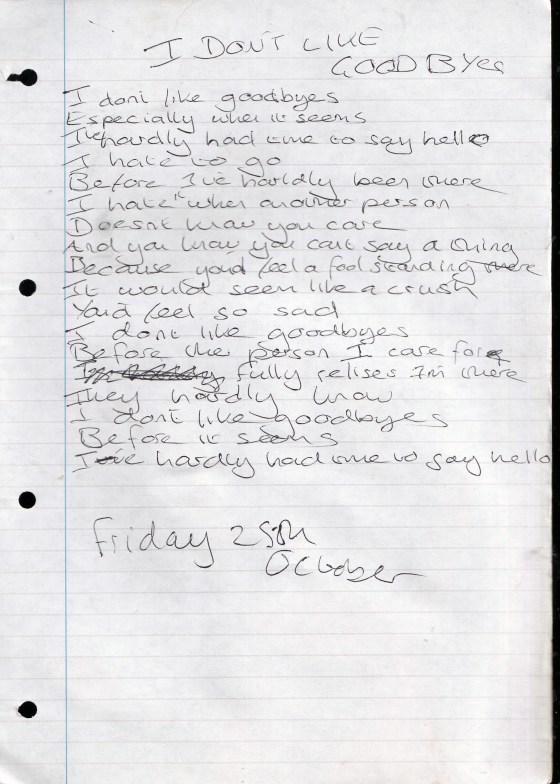 I DON'T LIKE
GOODBYes
I dont like goodbyes
Especially when it seems
I've hardly had time to say hello
I hate to go
Before I've hardly been there
I hate it when another person
Doesnt know you care
And you know you cant say a thing
Because you'd feel a fool standing there
It would seem like a crush
You'd feel so sad
I dont like goodbyes
Before the person I care for
fully relises I'm there
They hardly know
I dont like goodbyes
Before it seems
I've hardly had time to say hello
Friday 25th
October